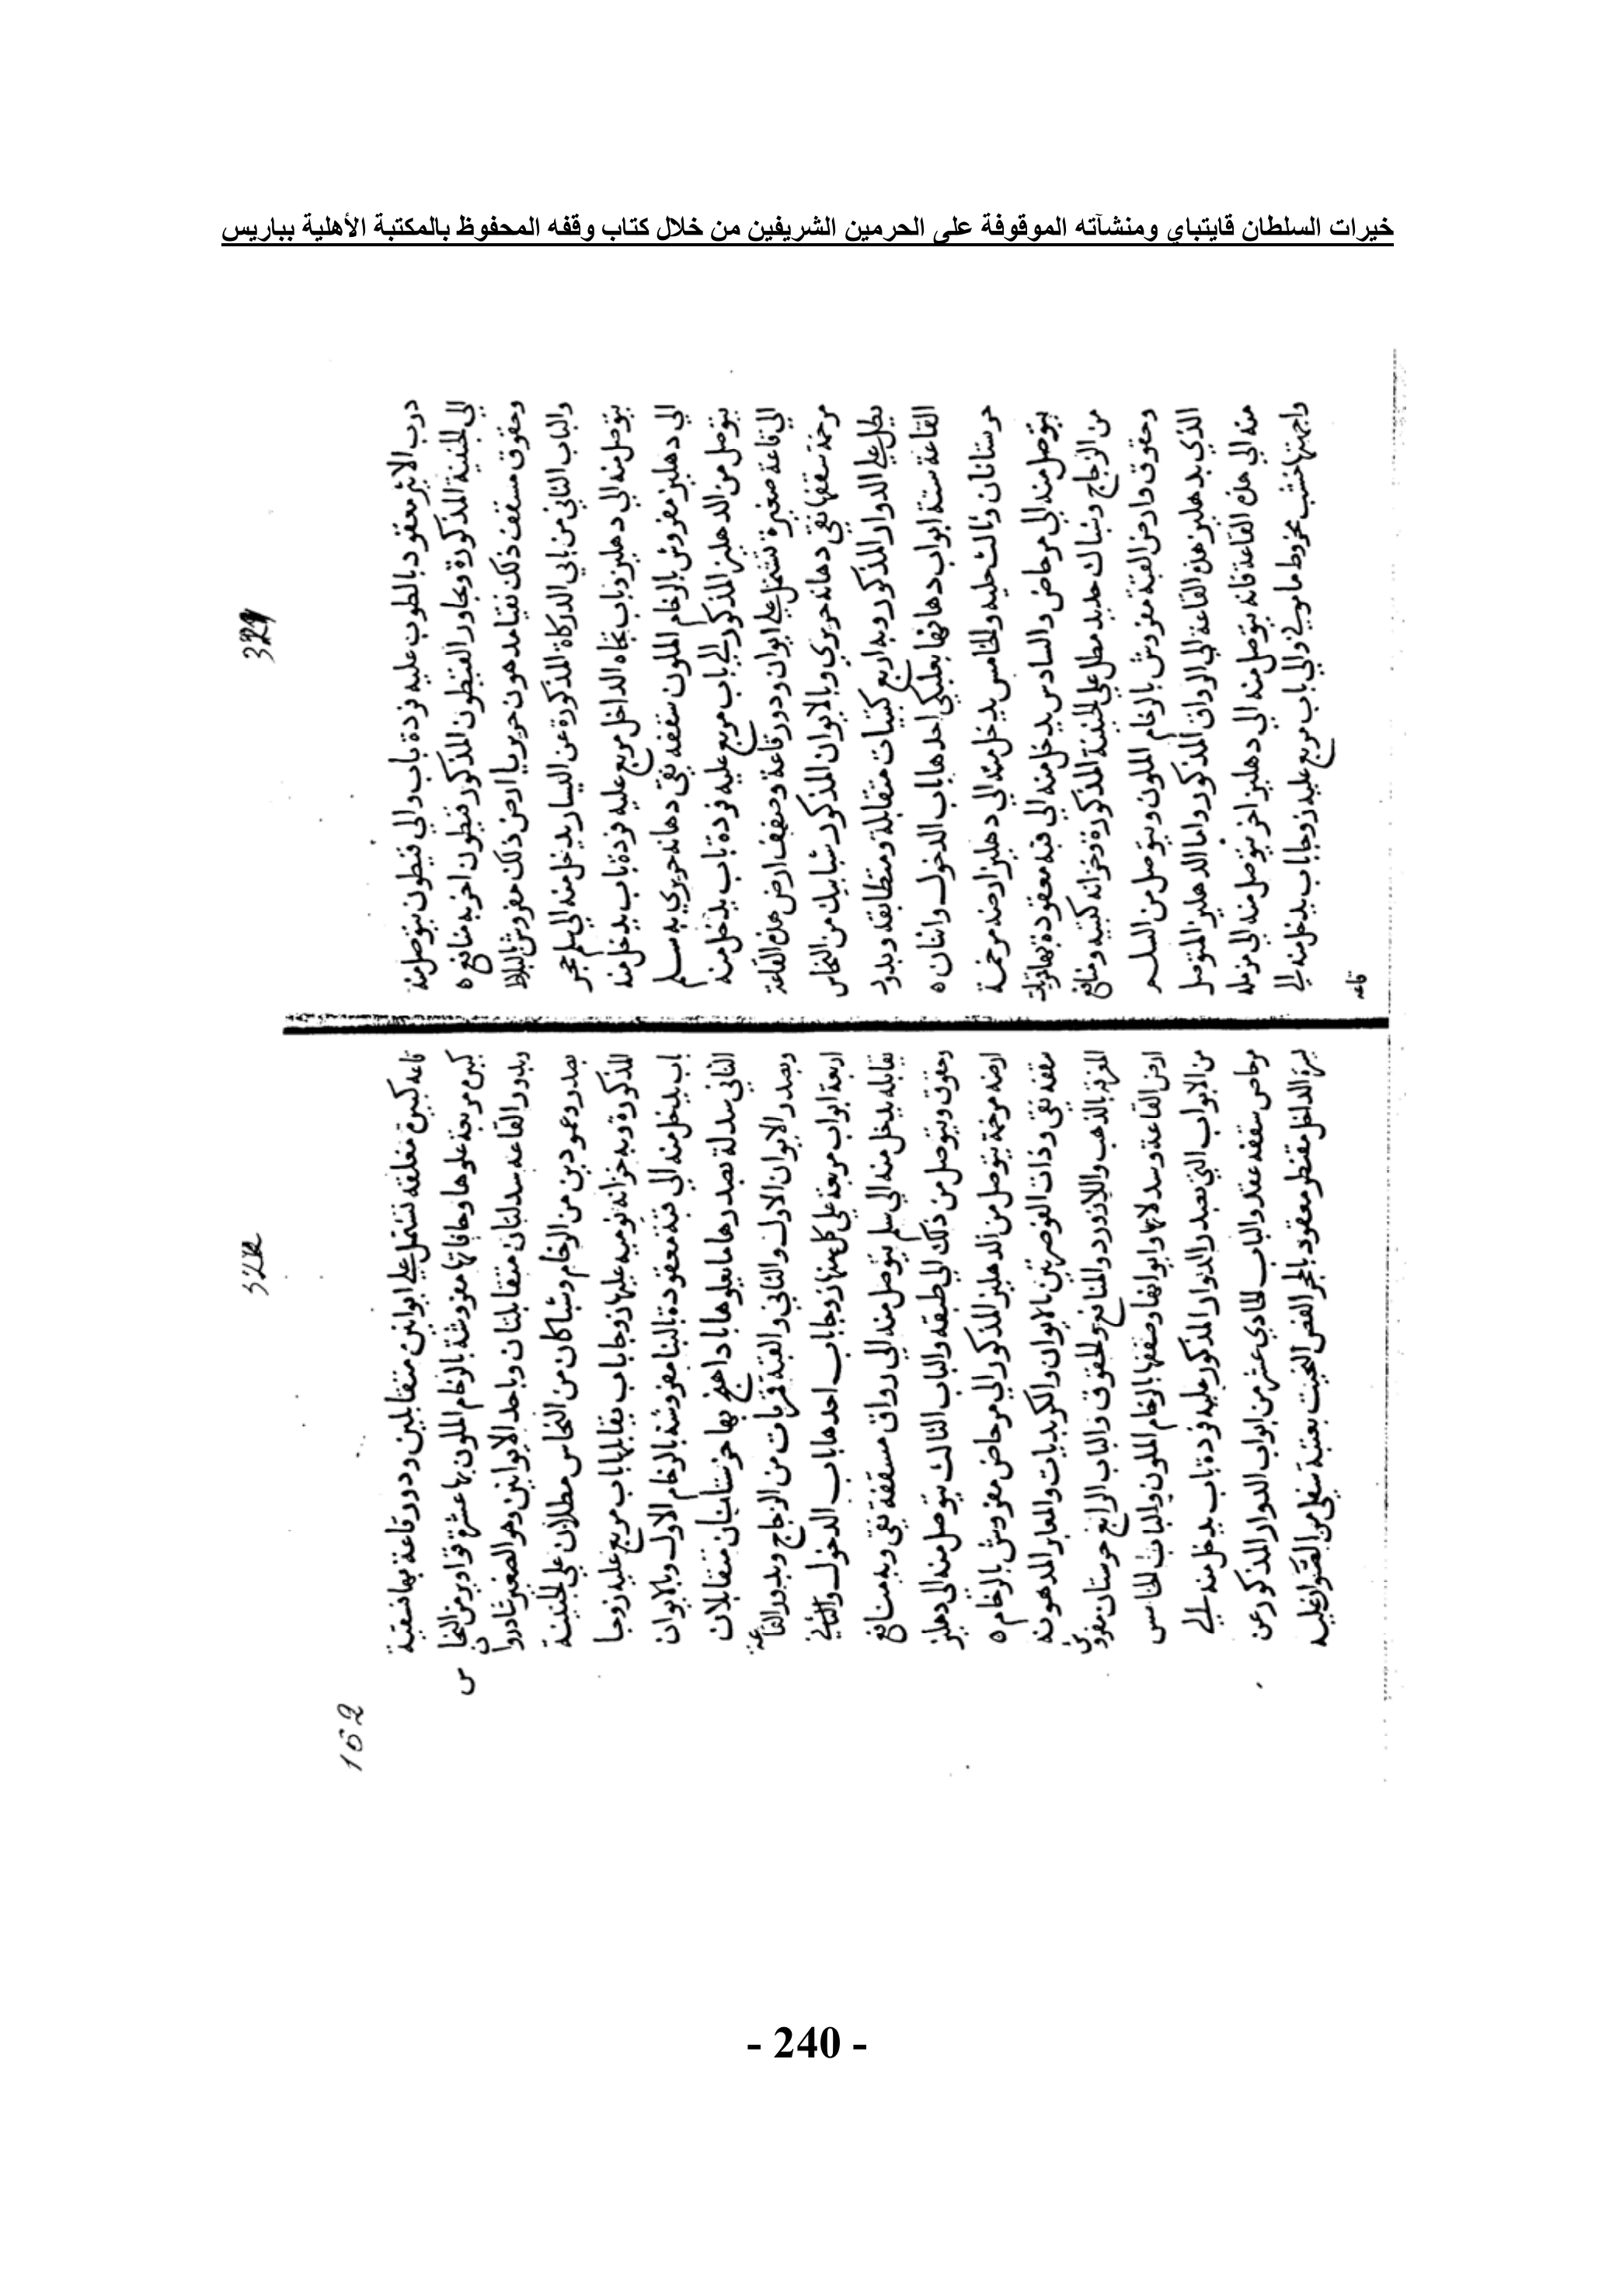 خيرات السلطان قايتباي ومنشآته الموقوفة على الحرمين الشريفين من خلال كتاب وقفه المحفوظ بالمكتبة الأهلية بباريس
درب الاثر معقود بالطوب عليه فردة باب والي قيطون يتوصل منه
الي الجنينة المذكورة ويجاور القيطون المذكور قيطون اخر به منافع
وحقوق مسقف ذلك نقيا مدهون حريريا ارض ذلك مفروش بالبلاط
والباب الثاني من بابي الدركاة المذكورة عن اليسار يدخل منه الي سلم حجر
يتوصل منه الي دهليز وباب تجاه الداخل مربع عليه فردة باب يدخل منه
الي دهليز مفروش بالرخام الملون سقفه نقي دهانه حريري به سلم
يتوصل من الدهليز المذكور الي باب مربع عليه فردة باب يدخل منه
الي قاعة صغيرة تشتمل علي ايوان ودور قاعة وصفف ارض هذه القاعة
مرخمة سقفها نقي دهانه حريري وبالايوان المذكور شبابيك من النحاس
يطل علي الدوار المذكور وبه اربع كتبيات متقابلة ومتطابقه وبدور
القاعة ستة ابواب دهانها بعلبكي احدها باب الدخول واثنان
خرستانان وثالث حليه والخامس يدخل منه الي دهليز ارضه مرخمة
يتوصل منه الي مرحاض والسادس يدخل منه الي قبه معقودة بها قمريات
من الزجاج وشباك حديد مطل علي الجنينة المذكورة وخزانه كتبيه ومنافع
وحقوق وارض القبة مفروش بالرخام الملون ويتوصل من السلم
الذي بدهليز هذه القاعة الي الرواق المذكور واما الدهليز المتوصل
منه الي هذه القاعة فانه يتوصل منه الي دهليز اخر يتوصل منه الي مزمله
واجهتها خشب مخروط ماموني والي باب مربع عليه زوجا باب يدخل منه الي
قاعه
324
162
322
قاعه كبيرة مغلقه تشتمل علي ايوانين متقابلين ودور قاعة بها فسقية
كبيرة مربعة علوها وحافاتها مفروشة بالرخام الملون بها عشرة قوارير من النحاس
وبدور القاعه سدلتان متقابلتان وباحد الايوانين وهو الصغير شادروان
بصدره عمودين من الرخام وشباكان من النحاس مطلان علي الجنينة
المذكورة وبه خزانه نوميه عليها زوجا باب يقابلها باب مربع عليه زوجا
باب يدخل منه الي قبة معقودة بالبنا مفروشة بالرخام الاول وبالايوان
الثاني سدلة بصدرها ما يعلوها باداهنج بها خرستانان متقابلان
وبصدر الايوان الاول والثاني والقبة قمريات من الزجاج وبدور القاعة
اربعة ابواب مربعة علي كل منها زوجا باب احدها باب الدخول والثاني
يقابله يدخل منه الي سلم يتوصل منه الي رواق مسقفة نقي وبه منافع
وحقوق ويتوصل من ذلك الي طبقه والباب الثالث يتوصل منه الي دهليز
ارضه مرخمة يتوصل من الدهليز المذكور الي مرحاض مفروش بالرخام
سقفه نقي وذات القوصرتين بالايوان والكريديات والمعابر المدهونة
المغرقة بالذهب واللازورد والمنافع والحقوق والباب الرابع خرستان مفروش
ارض القاعة وسدلاتها وايوانها وصففها بالرخام الملون والباب الخامس
من الابواب التي بصدر الدوار المذكور عليه فردة باب يدخل منه الي
مرحاض سقفه عقد والباب الحادي عشر من ابواب الدوار المذكور عن
يسرة الداخل مقنطر معقود بالحجر الفص النحيت بعتبة سفلي من الصوان عليه
- 240 -